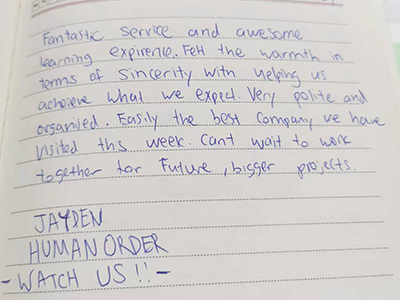 Fantastic service and awesome
learning expirence. Felt the warmth in
terms of sincerity with helping us
acheieve what we expect. Very polite and
organized. Easily the best company we have
visited this week. Can't wait to work
together for future, bigger projects.
JAYDEN
HUMAN ORDER
- WATCH US!! -